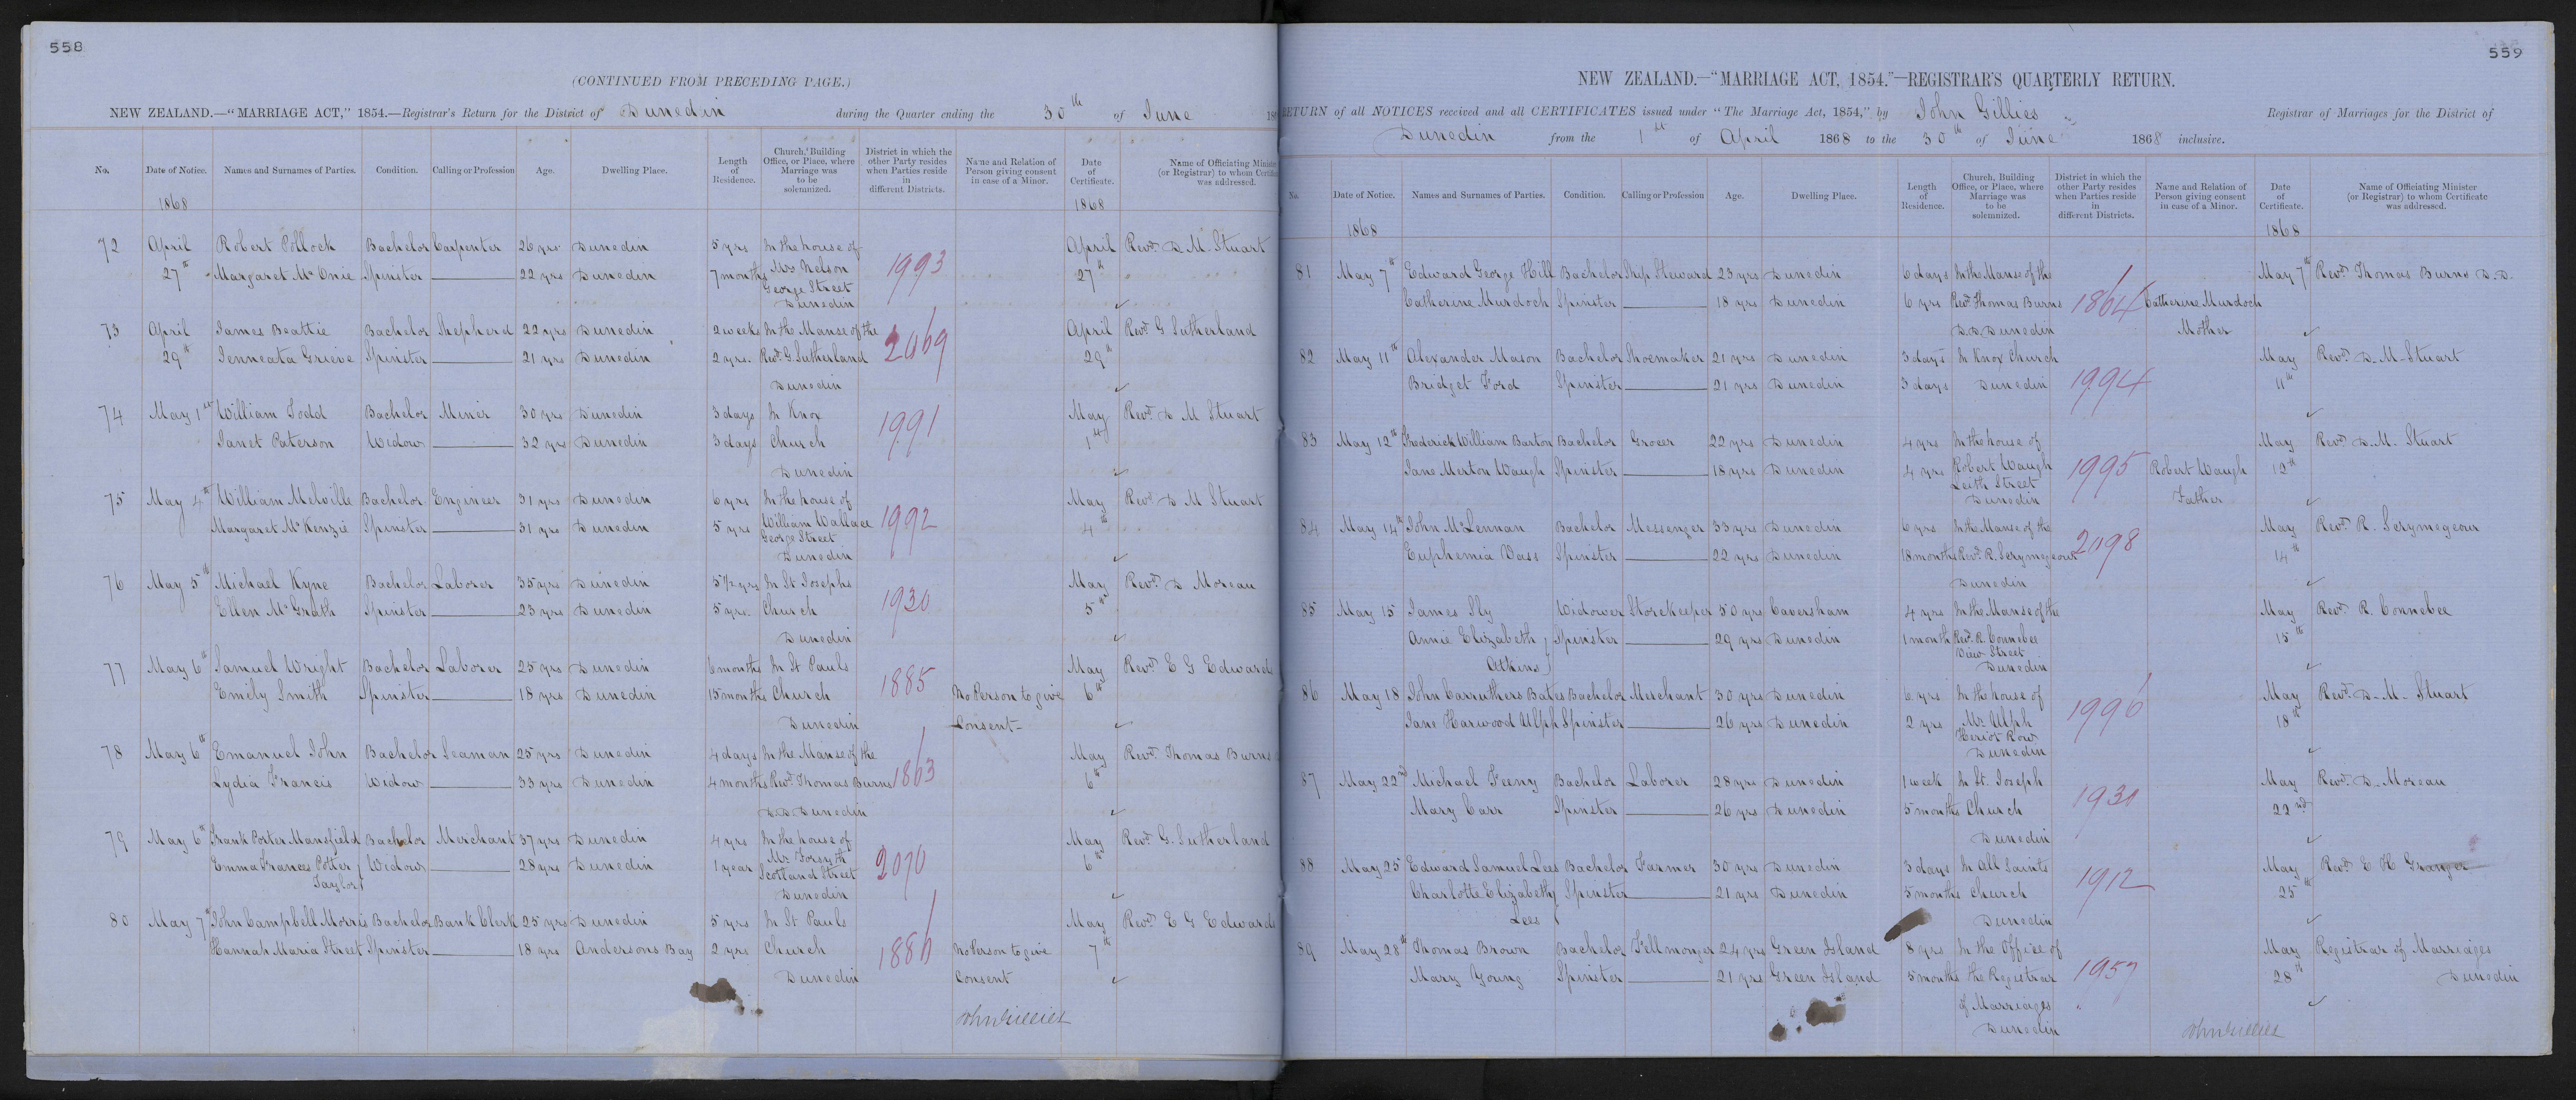 558
(CONTINUED FROM PRECEDING PAGE.)
NEW ZEALAND.—"MARRIAGE ACT," 1854.—Registrar's Return for the District of Dunedin during the Quarter ending the 30th of June
No. Date of Notice. Names and Surnames of Parties. Condition. Calling or Profession Age. Dwelling Place. Length of Residence. Church, Building Office, or Place, where Marriage was to be solemnized. District in which the other Party resides when Parties reside in different Districts. Name and Relation of Person giving consent in case of a Minor. Date of Certificate. Name of Officiating Minister (or Registrar) to whom Certificate was addressed.
1868 1868
72 April Robert Pollock Bachelor Carpenter 26 yrs Dunedin 5 yrs In the house of April Revd D. M. Stuart
27th Margaret McOnie Spinster 22 yrs Dunedin 7 months Mrs Nelson 1993 27th
George Street
Dunedin
73 April James Beattie Bachelor Shepherd 22 yrs Dunedin 2 weeks In the Manse of the April Revd G Sutherland
29th Jenneata Grieve Spinster 21 yrs Dunedin 2 yrs. Revd. G. Sutherland 2069 29th
Dunedin
74 May 1st William Todd Bachelor Miner 30 yrs Dunedin 3 days In Knox 1991 May Revd D M Stuart
Janet Paterson Widow 32 yrs Dunedin 3 days Church 1st
Dunedin
75 May 4th William Melville Bachelor Engineer 31 yrs Dunedin 6 yrs In the house of May Revd D M Stuart
Margaret McKenzie Spinster 31 yrs Dunedin 5 yrs William Wallace 1992 4th
George Street
Dunedin
76 May 5th Michael Kyne Bachelor Laborer 35 yrs Dunedin 5 1/2 yrs In St Josephs May Revd D Moreau
Ellen McGrath Spinster 23 yrs Dunedin 5 yrs. Church 1930 5th
Dunedin
77 May 6th Samuel Wright Bachelor Laborer 25 yrs Dunedin 6 months In St Pauls May Revd E G Edwards
Emily Smith Spinster 18 yrs Dunedin 15 months Church 1885 No Person to give 6th
Dunedin Consent
78 May 6th Emanuel John Bachelor Seaman 25 yrs Dunedin 4 days In the Manse of the May Revd Thomas Burns
Lydia Francis Widow 33 yrs Dunedin 4 months Revd Thomas Burns 1863 6th
D.D. Dunedin
79 May 6th Frank Porter Mansfield Bachelor Merchant 37 yrs Dunedin 4 yrs In the house of May Revd G. Sutherland
Emma Frances Potter Widow 28 yrs Dunedin 1 year Mr Forsyth 2070 6th
Taylor Scotland Street
Dunedin
80 May 7th John Campbell Morris Bachelor Bank Clerk 25 yrs Dunedin 5 yrs In St Pauls May Revd E G Edwards
Hannah Maria Street Spinster 18 yrs Andersons Bay 2 yrs Church 1886 No Person to give 7th
Dunedin Consent
John Gillies
559
NEW ZEALAND.—"MARRIAGE ACT, 1854."—REGISTRAR'S QUARTERLY RETURN.
RETURN of all NOTICES received and all CERTIFICATES issued under "The Marriage Act, 1854," by John Gillies Registrar of Marriages for the District of
Dunedin from the 1st of April 1868 to the 30th of June 1868 inclusive.
No. Date of Notice. Names and Surnames of Parties. Condition. Calling or Profession Age. Dwelling Place. Length of Residence. Church, Building Office, or Place, where Marriage was to be solemnized. District in which the other Party resides when Parties reside in different Districts. Name and Relation of Person giving consent in case of a Minor. Date of Certificate. Name of Officiating Minister (or Registrar) to whom Certificate was addressed.
1868 1868
81 May 7th Edward George Hill Bachelor Ship Steward 23 yrs Dunedin 6 days In the Manse of the May 7th Revd. Thomas Burns D.D.
Catherine Murdoch Spinster 18 yrs Dunedin 6 yrs Revd. Thomas Burns 1864 Catherine Murdoch
D.D. Dunedin Mother
82 May 11th Alexander Mason Bachelor Shoemaker 21 yrs Dunedin 3 days In Knox Church May Revd D. M. Stuart
Bridget Ford Spinster 21 yrs Dunedin 3 days Dunedin 1994 11th
83 May 12th Frederick William Barton Bachelor Grocer 22 yrs Dunedin 4 yrs In the house of May Revd D. M. Stuart
Jane Merton Waugh Spinster 18 yrs Dunedin 4 yrs Robert Waugh 1995 Robert Waugh 12th
Leith Street Father
Dunedin
84 May 14th John McLennan Bachelor Messenger 33 yrs Dunedin 6 yrs In the Manse of the May Revd. R. Scrymegeour
Euphemia Vass Spinster 22 yrs Dunedin 18 months Revd. R. Scrymegeour 2098 14th
Dunedin
85 May 15 James Sly Widower Storekeeper 50 yrs Caversham 4 yrs In the Manse of the May Revd. R. Connebee
Annie Elizabeth Spinster 29 yrs Dunedin 1 month Revd. R. Connebee 15th
Atkins View Street
Dunedin
86 May 18 John Carruthers Bates Bachelor Merchant 30 yrs Dunedin 6 yrs In the house of May Revd. D. M. Stuart
Jane Harwood Ulph Spinster 26 yrs Dunedin 2 yrs Mr. Ulph 1996 18th
Heriot Row
Dunedin
87 May 22nd Michael Feeny Bachelor Laborer 28 yrs Dunedin 1 week In St. Joseph May Revd. D. Moreau
Mary Carr Spinster 26 yrs Dunedin 5 months Church 1931 22nd
Dunedin
88 May 25 Edward Samuel Lees Bachelor Farmer 30 yrs Dunedin 3 days In All Saints May Revd. E. H. Granger
Charlotte Elizabeth Spinster 21 yrs Dunedin 5 months Church 1912 25th
Lees Dunedin
89 May 28th Thomas Brown Bachelor Fellmonger 24 yrs Green Island 8 yrs In the Office of May Registrar of Marriages
Mary Young Spinster 21 yrs Green Island 5 months the Registrar 1957 28th Dunedin
of Marriages
Dunedin
John Gillies